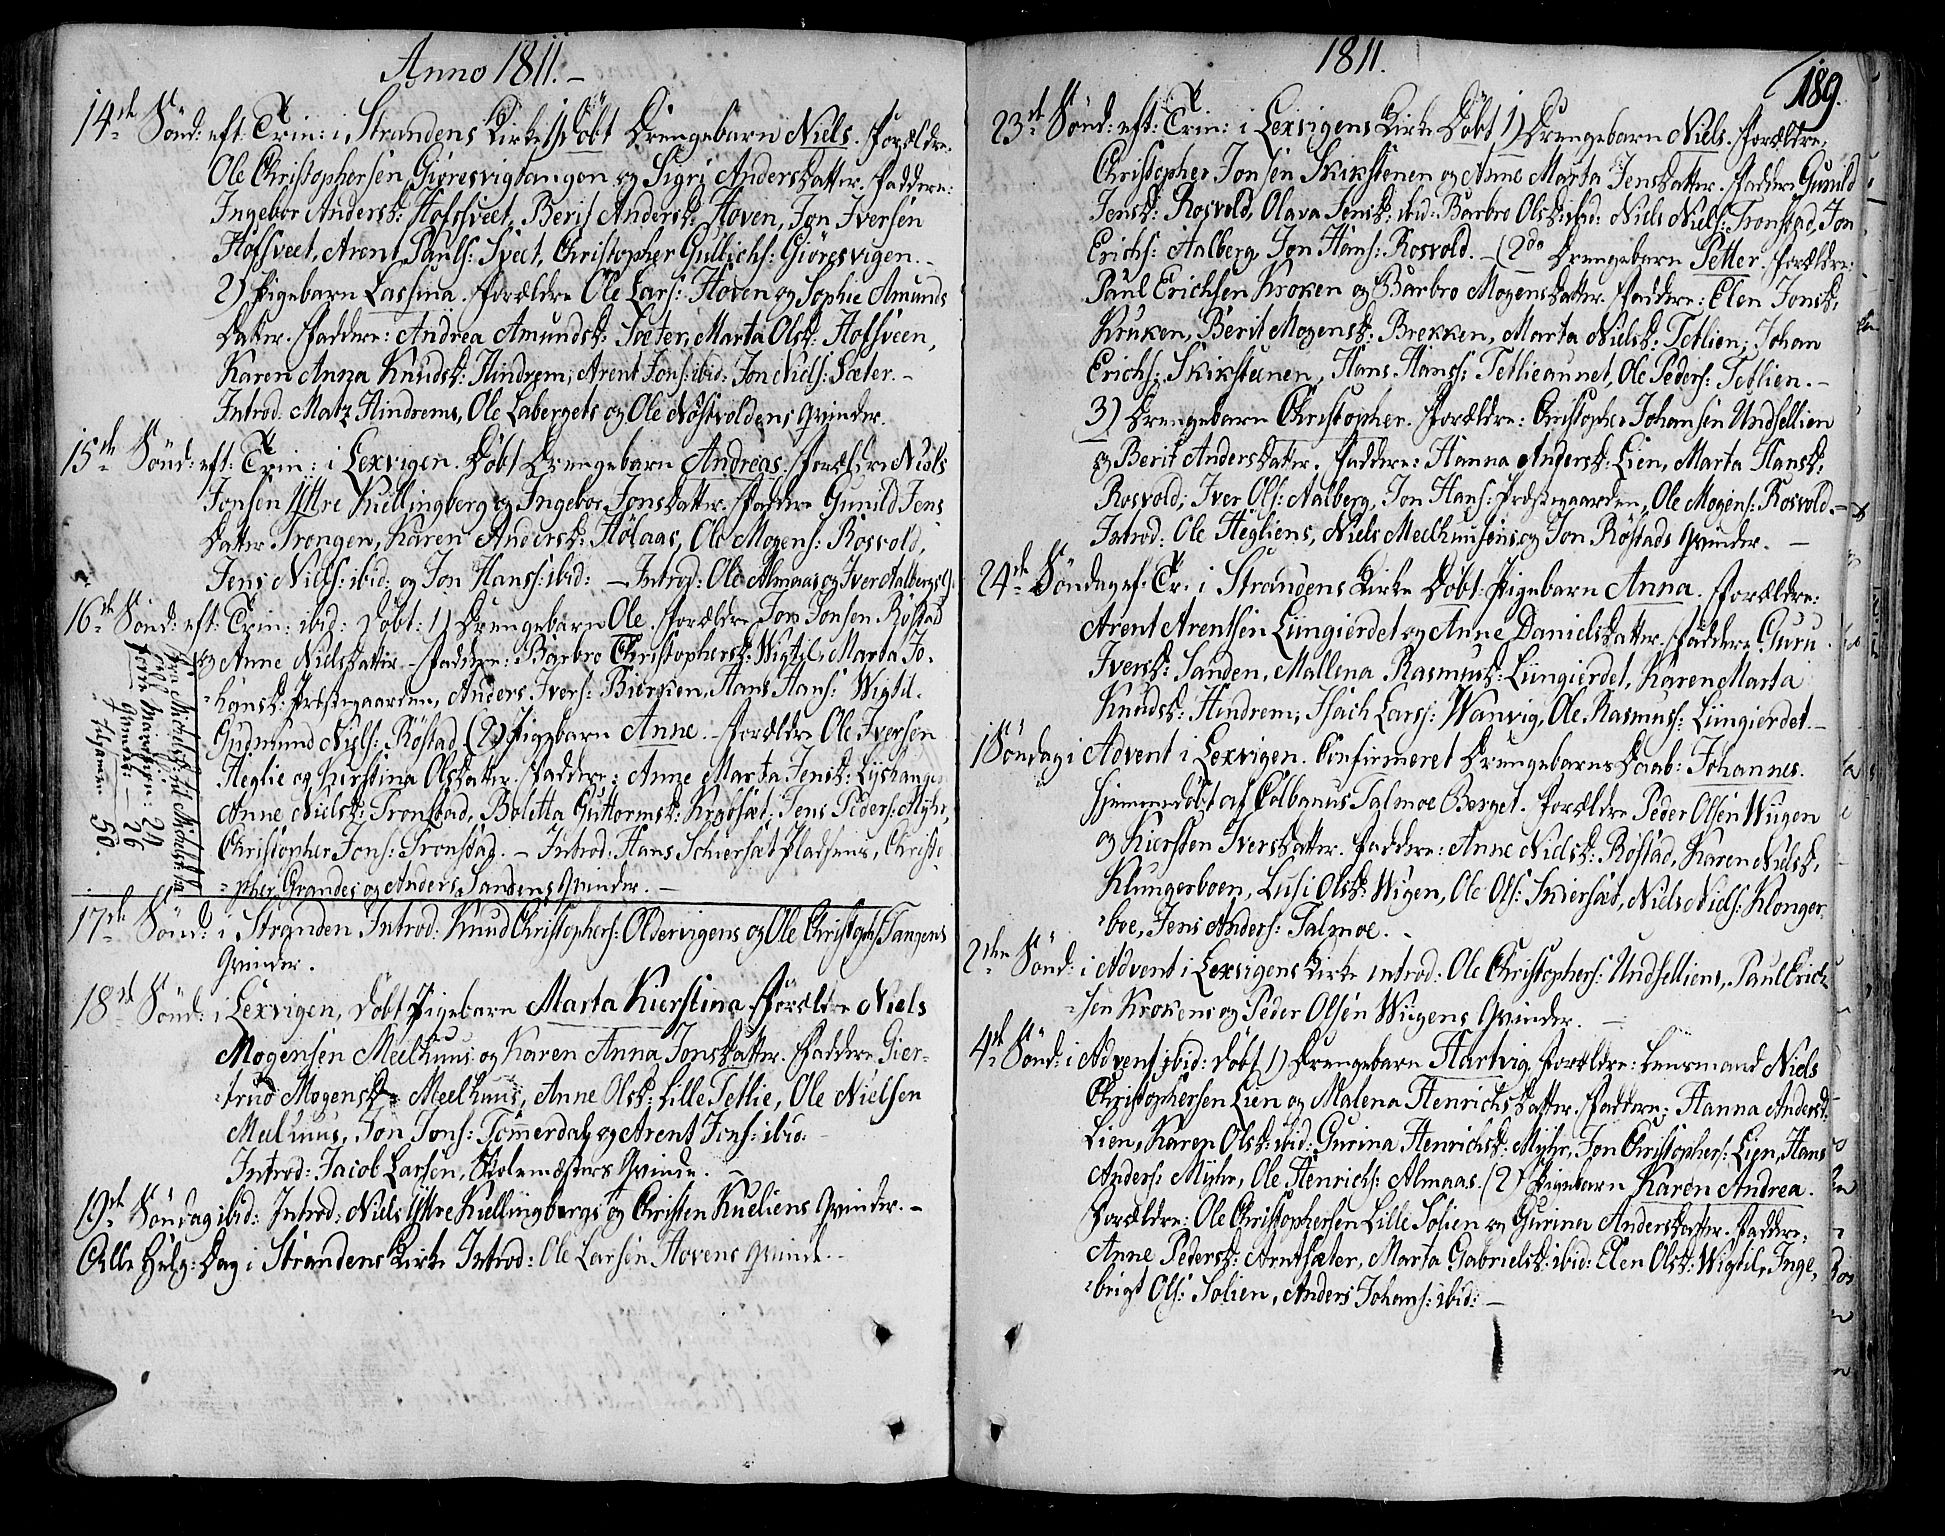 Anno 1811.-
14de Sönd: eft: Trin: i Strandens Kirke 1) Döbt Drengebarn Niels. Forældre:
Ole Christophersen Giöresvigtangen og Sigri Andersdatter. Faddere:
Ingebor Andersd: Hofsveet, Berit Andersd: Hoven, Jon Iversen
Hofsveet, Arent Pauls: Sveet, Christopher Gullichs: Giöresvigen.-
2) Pigebarn Lassina. Forældre Ole Lars: Hoven og Sophie Amunds
Datter. Faddere: Andrea Amundsd: Sæter, Marta Olsd: Hofsveen,
Karen Anna Knudsd: Hindrem, Arent Jons: ibid: Jon Niels: Sæter.-
Introd. Matz Hindrems, Ole Labergets og Ole Nöstvoldens Qvinder.
15de Sönd: eft: Trin: i Lexvigen. Döbt Drengebarn Andreas. Forældre Niels
Jonsen Yttre Kiellingberg og Ingebor Jonsdatter. Faddere Gunild Jens
Datter Trongen, Karen Andersd: Hölaas, Ole Mogens: Rosvold,
Jens Niels: ibid: og Jon Hanss: ibid: - Introd: Ole Almaas og Iver Aalbergs Q:
16de Sönd: eft: Trin: ibid: Döbt: 1) Drengebarn Ole. Forældre Jon Jonsen Röstad
og Anne Nielsdatter - Faddere: Barbro Christophersd: Wigtil, Marta Jo-
-hansd: Præstegaarden, Anders Ivers: Bierken, Hans Hans: Wigtil.
Gudmund Niels: Röstad (2) Pigebarn Anne. - Forældre Ole Iversen
Heglie og Kirstina Olsdatter. Faddere: Anne Marta Jensd: Lyshaugen
Anne Nielsd: Tronstad, Boletta Guttormsd: Krogsæt, Jens Peders: Myhr,
Christopher Jons: Tronstad. - Introd: Hans Schiersæt Pladsens, Christo
-pher Grandes og Anders Sandens Qvinder.-
Fra Michelsd: til Michelsd:
1811
föde Mandkjøn: 24
Qvinder - 26
Summa 50.
17de Sönd: i Stranden Introd: Knud Christophers: Oldervigens og Ole Christophs: Tangens
Qvinder.
18de Sönd: i Lexvigen, Döbt Pigebarn Marta Kierstina Forældre Niels
Mogensen Meelhuus og Karen Anna Jonsdatter. Faddere Gier-
-trud Mogensd: Meelhuus, Anne Olsd: Lille Tetlie, Ole Nielsen
Melhuus, Jon Jons: Tömmerdal, og Arent Jons: ibid:
Introd: Jacob Larsen, Skolemesters Qvinde.-
19de Söndag ibid: Introd: Niels Yttre Kiellingbergs og Christen Kueliens Qvinder.-
Alle Helg: Dag i Strandens Kirke Introd: Ole Larsen Hovens Qvinde.-
1811.
189.
23de Sönd: eft: Trin: i Lexvigens Kirke Döbt 1) Drengebarn Niels. Forældre,
Christopher Jonsen Skikstenen og Anne Marta Jensdatter. Faddere Gunild
Jensd: Rosvold, Olava Jensd: ibid: Barbro Olsd: ibid: Niels Niels: Tronstad, Jon
Erichs: Aalberg, Jon Hans: Rosvold. - (2do Drengebarn Petter. Forældre:
Paul Erichsen Kroken og Barbro Mogensdatter. Faddere: Elen Jonsd:
Kruken, Berit Mogensd: Brekken, Marta Nielsd: Tetlien, Johan
Erichs: Skikstenen, Hans Hanss: Tetlieaunet, Ole Peders: Tetlien.-
3) Drengebarn Christopher. Forældre: Christopher Johansen Undsellien
og Berit Andersdatter. Faddere: Hanna Andersd: Lien, Marta Hansd:
Rosvold, Iver Ols: Aalberg, Jon Hans: Præstegaarden, Ole Mogens: Rosvold.-
Introd: Ole Hegliens, Niels Meelhuusens og Jon Röstads Qvinder. -
24de Söndag ef: Tr: i Strandens Kirke Döbt: Pigebarn Anna. Forældre:
Arent Arentsen Liingierdet og Anne Danielsdatter. Faddere Guru
Iversd: Sanden, Mallena Rasmusd: Liingierdet, Karen Marta
Knudsd: Hindrem, Isach Larss: Wanvig, Ole Rasmuss: Liingierdet.-
1 Söndag i Advent i Lexvigen. Confirmeret Drengebarns Daab: Johannes.
hjemmedöbt af Colbanus Talmoe Berget. Forældre Peder Olsen Wiigen
og Kiersten Iversdatter. Faddere: Anne Nielsd: Röstad, Karen Nielsd:
Klungerboen, Lusi Olsd: Wigen, Ole Ols: Skiersæt, Niels Niels: Klonger-
-boe, Jens Anders: Talmoe.-
2den Sönd: i Advent i Lexvigens Kirke introd: Ole Christophers: Undselliens, Paul Erich-
-sen Krokens og Peder Olsen Wiigens Qvinder.-
4de Sönd: i Advent ibid: Döbt 1) Drengebarn Hartvig. Forældre: Lensmand Niels
Christophersen Lien og Malena Henrichsdatter. Faddere: Hanna Andersd:
Lien, Karen Olsd: ibid: Gurina Henrichsd: Myhr, Jon Christophers: Lien, Hans
Anders: Myhr, Ole Henrichs: Almaas. (2) Pigebarn Karen Andrea.
Forældre: Ole Christophersen Lille Solien og Gurina Andersdatter. Faddere,
Anne Pedersd: Arntsæter, Marta Gabrielsd: ibid: Elen Olsd: Wigtil, Inge-
-brigt Ols: Solien, Anders Johans: ibid:-